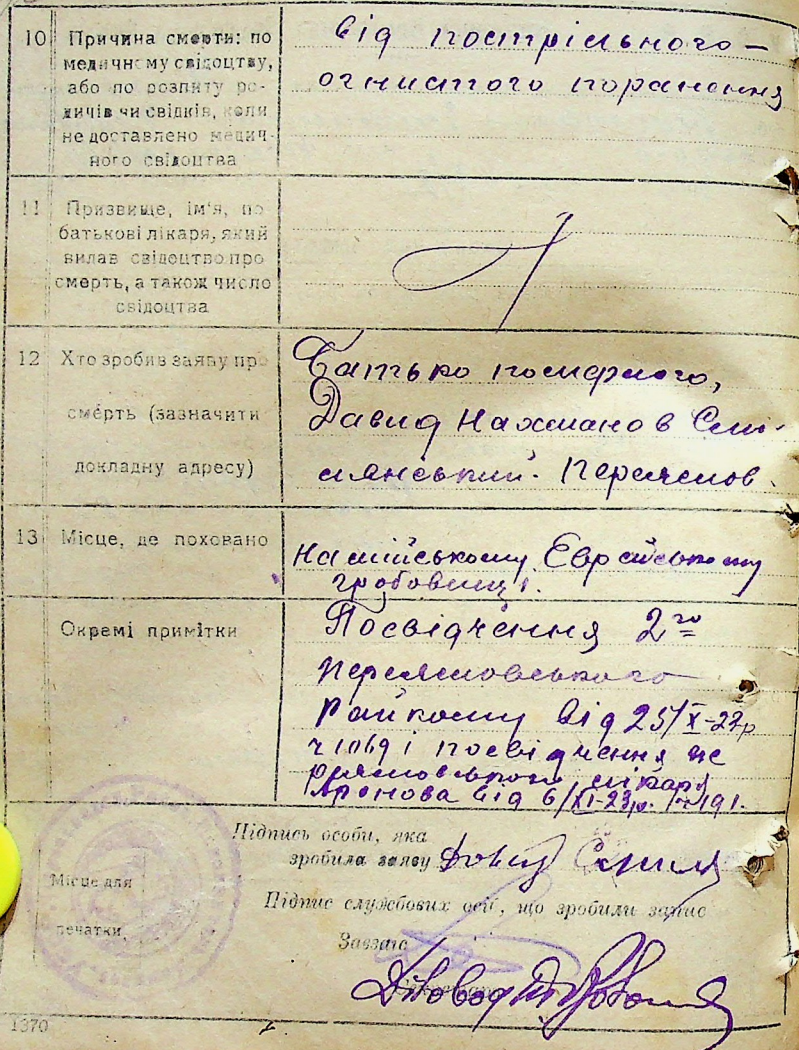 10 Причина смерти: по
медичному свідоцтву,
або по розпиту ро-
дичів чи свідків, коли
не доставлено медич-
ного свідоцтва
від пострільного-
огнистого поранення
11 Призвище, ім'я, по
батькові лікаря, який
видав свідоцтво про
смерть, а також число
свідоцтва
12 Хто зробив заяву про
смерть (зазначити
докладну адресу)
Батько померлого,
Давид Нахманов Смі-
лянський. Переяслов.
13 Місце, де поховано
На міському Єврейському
гробовищі.
Окремі примітки
Посвідчення 2го
Переясловського
Райкому від 25/X-23р
ч 1069 і посвідчення Пе
реясловського лікаря
Аронова від 6/XI-23р. ч 191.
Підпись особи, яка
зробила заяву Довид
Підпис службових осіб, що зробили запис
Завзагс
Місце для
печатки
1370